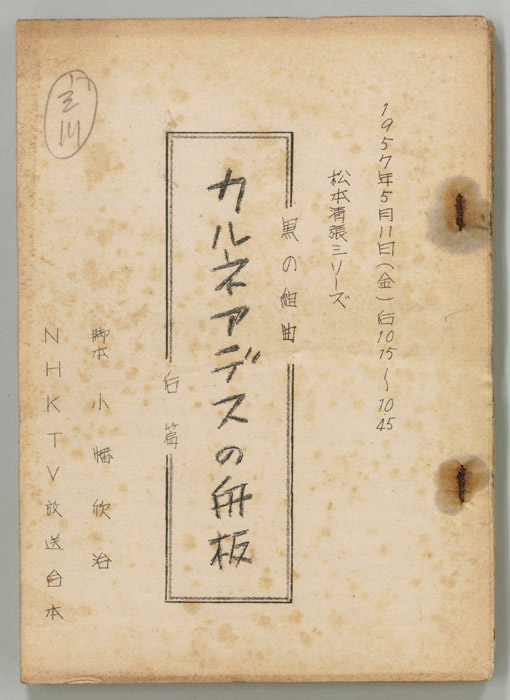 1957年5月11日(金)后10.15〜10.45
松本清張シリーズ
黒の組曲
カルネアデスの舟板
后篇
脚本 小幡欣治
NHKTV放送台本